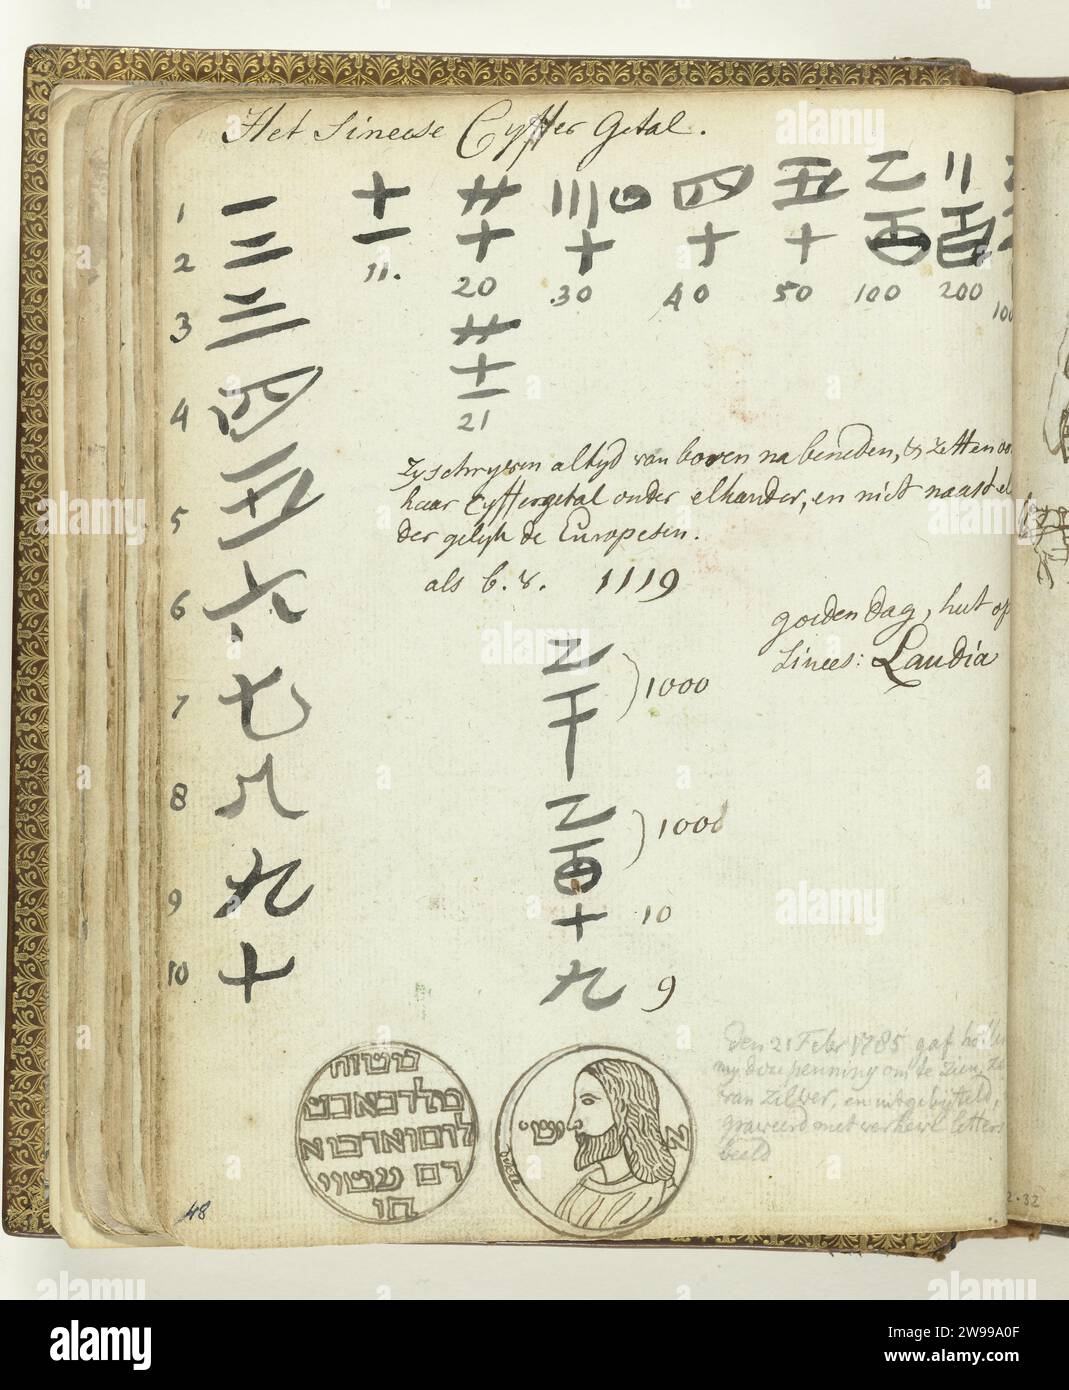 Het Sineese Cyffer Getal.
1 一
2 二
3 三
4 四
5 五
6 六
7 七
8 八
9 九
10 十
十 一 11.
廿 十 20
三 十 30
四 十 40
五 十 50
乙 百 100
百 200
100
廿 十 一 21
Zy schryven altyd van boven na beneden, & zetten
haar Cyffergetal onder elkander, en niet naast el
der gelyk de Europesen.
als b. v. 1119
乙 千 1000
乙 百 1000
十 10
九 9
goeden dag, hiet op
Sinees: Laudia
den 21 Febr 1785 gaf
my deze penning om te zien,
van Zilver, en
graveerd met verheve letters
beeld
ישו
48
2.32
alamy
Image ID: 2W99A0F
www.alamy.com